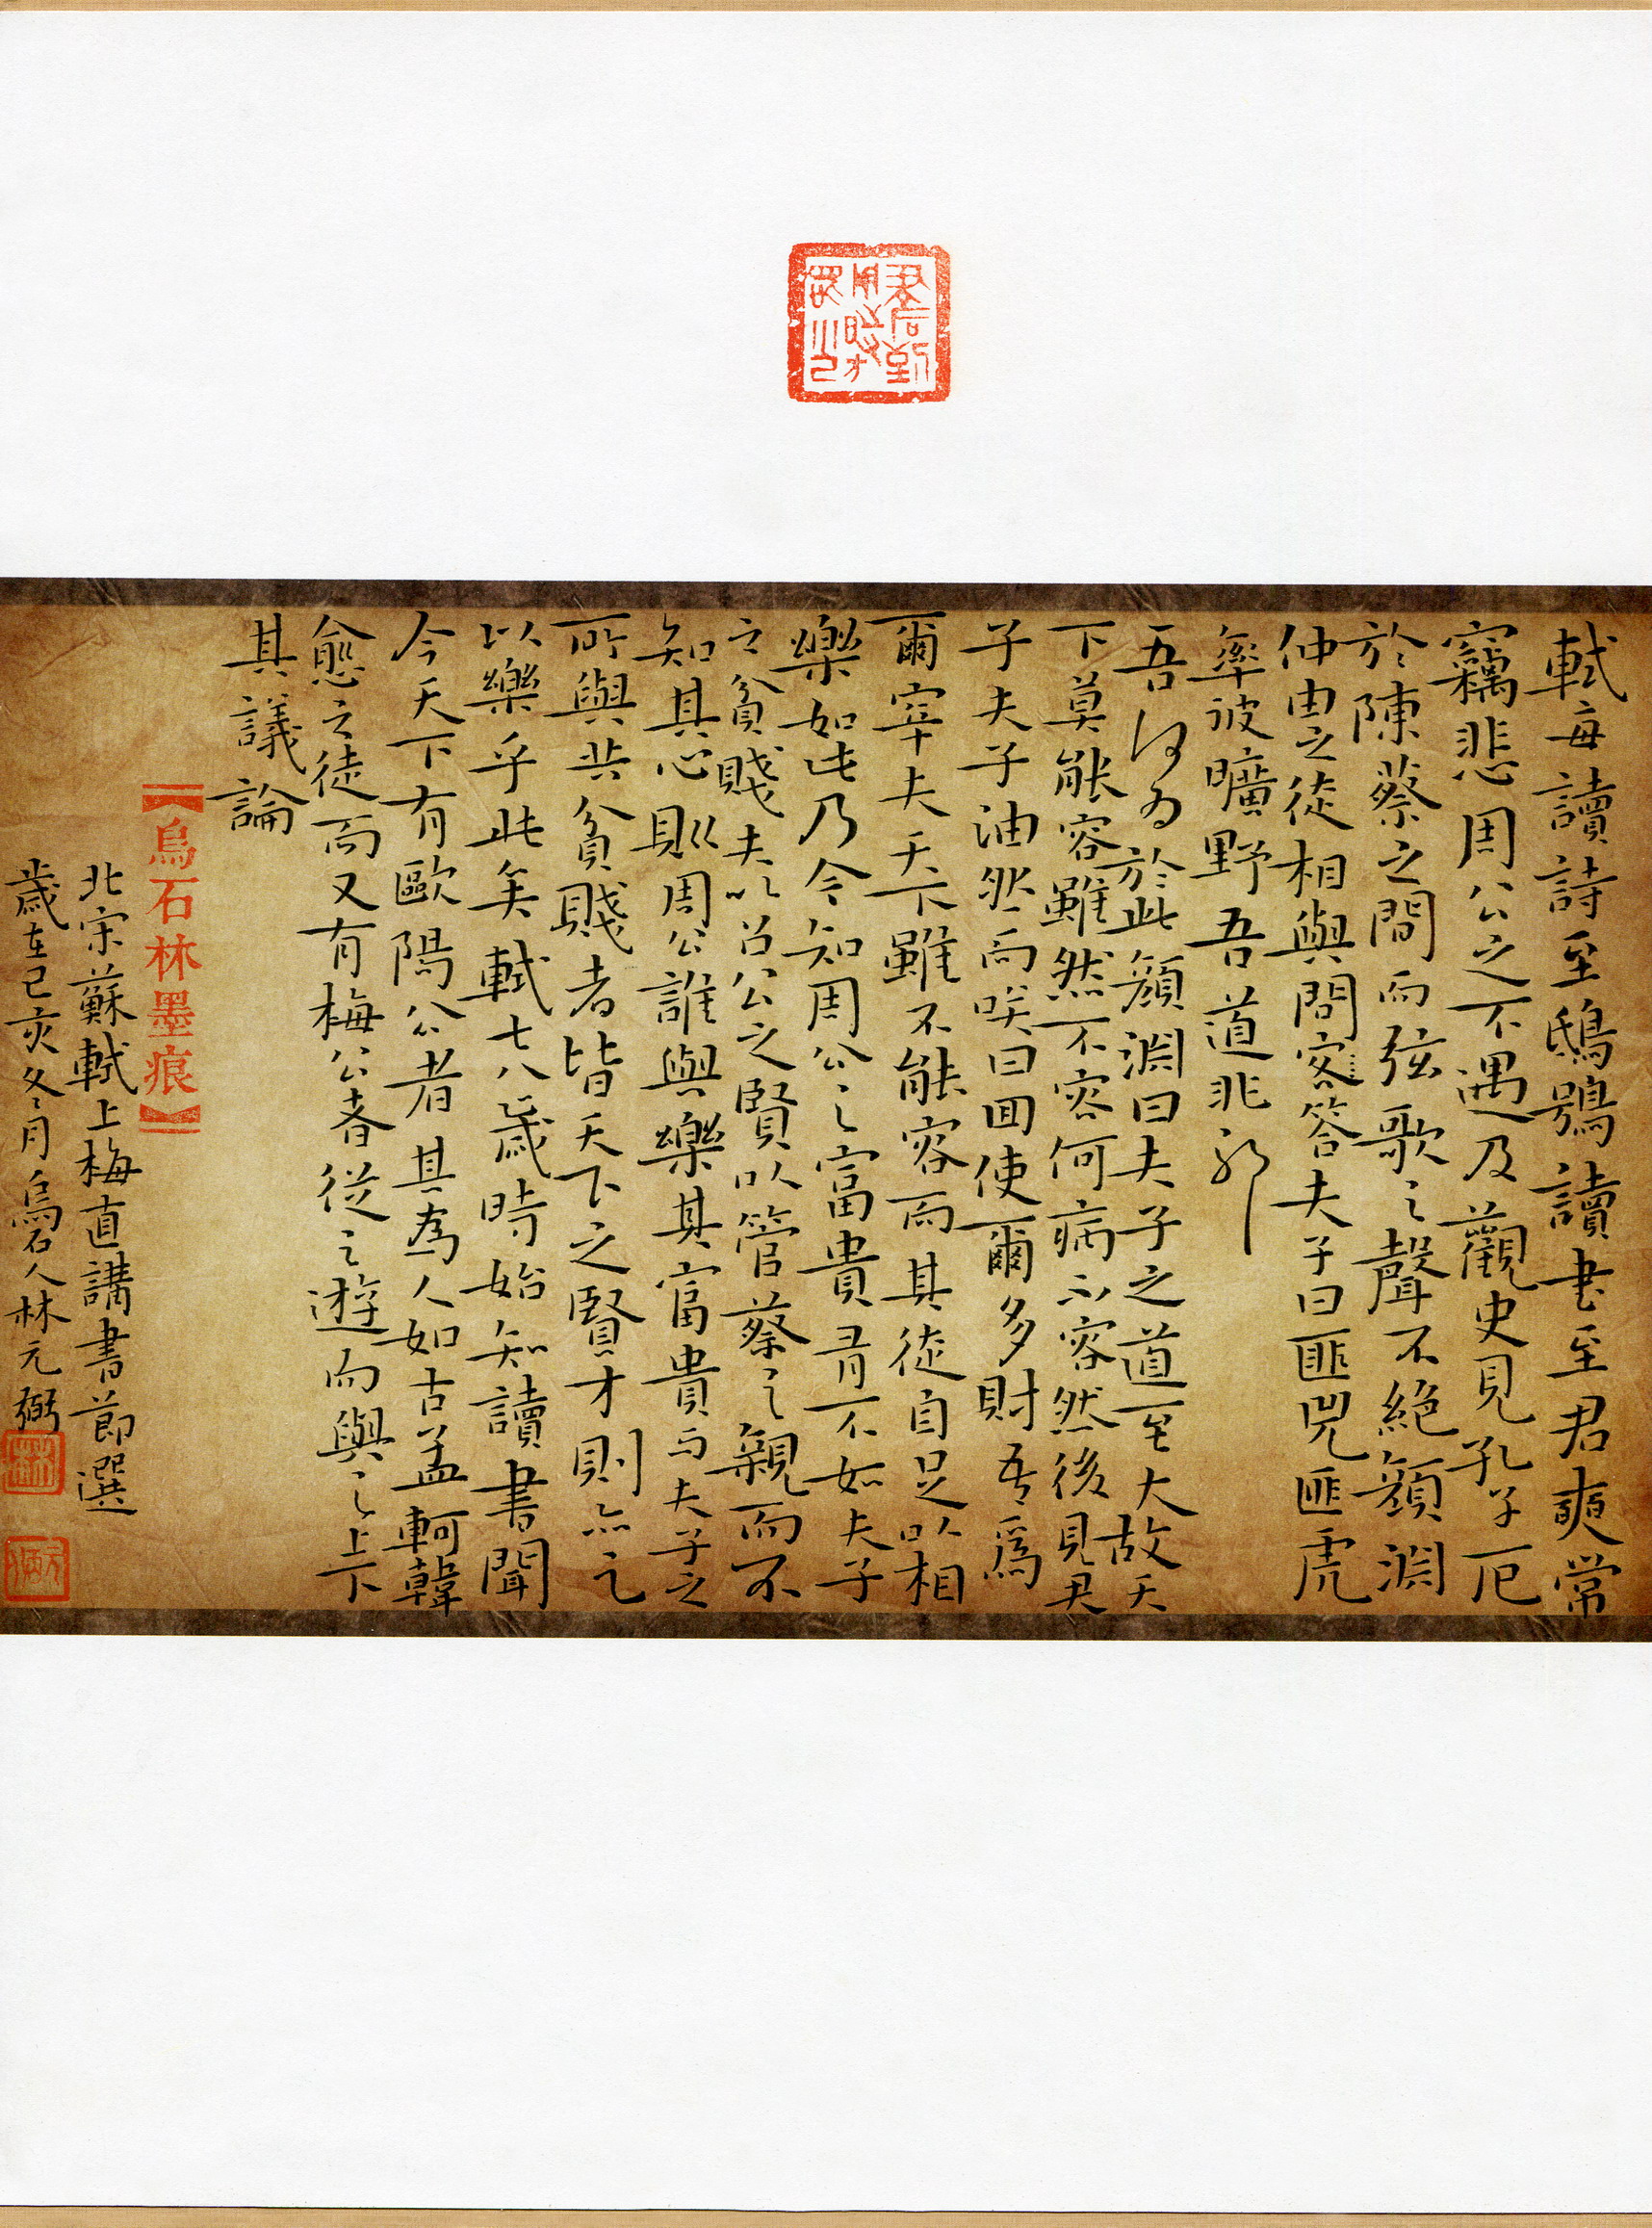 軾每讀詩至鴟鴞讀書至君奭常
竊悲周公之不遇及觀史見孔子厄
於陳蔡之間而弦歌之聲不絕顏淵
仲由之徒相與問答夫子曰匪兕匪虎
率彼曠野吾道非邪
吾何為於此顏淵曰夫子之道至大故天
下莫能容雖然不容何病不容然後見君
子夫子油然而笑曰回使爾多財吾為
爾宰夫天下雖不能容而其徒自足以相
樂如此乃今知周公之富貴有不如夫子
之貧賤夫以召公之賢以管蔡之親而不
知其心則周公誰與樂其富貴而夫子之
所與共貧賤者皆天下之賢才則亦足
以樂乎此矣軾七八歲時始知讀書聞
今天下有歐陽公者其為人如古孟軻韓
愈之徒而又有梅公者從之遊而與之上下
其議論
【烏石林墨痕】
北宋蘇軾上梅直講書節選
歲在己亥冬月烏石人林元弼